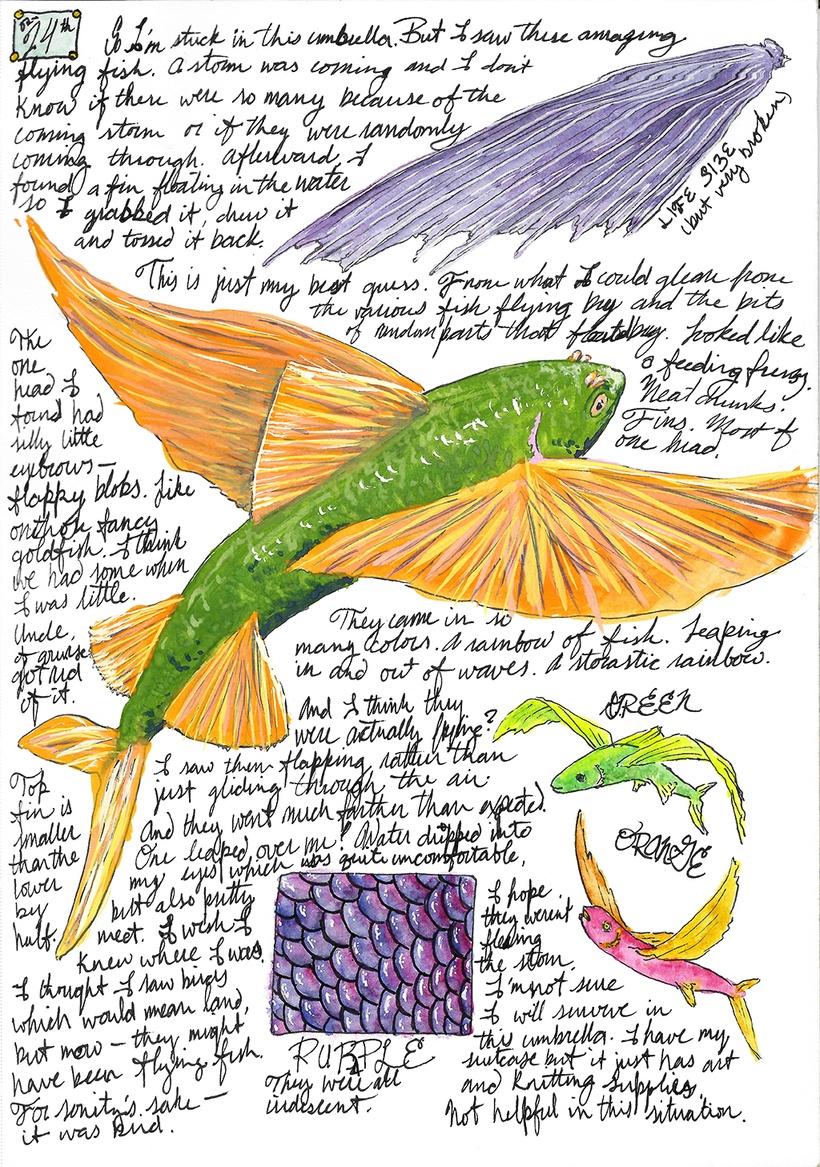 24th
So I'm stuck in this umbrella. But I saw these amazing
flying fish. A storm was coming and I don't
know if there were so many because of the
coming storm or if they were randomly
coming through. Afterward, I
found a fin floating in the water
so I grabbed it, drew it
and tossed it back.
LIFE SIZE
(but very broken)
This is just my best guess. From what I could glean from
the various fish flying by and the bits
of random parts that floated by. Looked like
a feeding frenzy.
Meat chunks.
Fins. Most of
one head.
The
one
head I
found had
silly little
eyebrows –
flappy blobs. Like
on those fancy
goldfish. I think
we had some when
I was little.
Uncle,
of course
got rid
of it.
They came in so
many colors. A rainbow of fish. Leaping
in and out of waves. A stocastic rainbow.
And I think they
were actually flying?
I saw them flapping rather than
just gliding through the air.
And they went much farther than expected.
One leaped over me! Water dripped into
my eyes which was quite uncomfortable,
but also pretty
neat. I wish I
knew where I was.
I thought I saw birds
which would mean land,
but now – they might
have been flying fish.
For sanity's sake –
it was bird.
Top
fin is
smaller
than the
lower
by
half.
GREEN
ORANGE
PURPLE
They were all
iridescent.
I hope
they weren't
fleeing
the storm.
I'm not sure
I will survive in
this umbrella. I have my
suitcase but it just has art
and knitting supplies.
Not helpful in this situation.